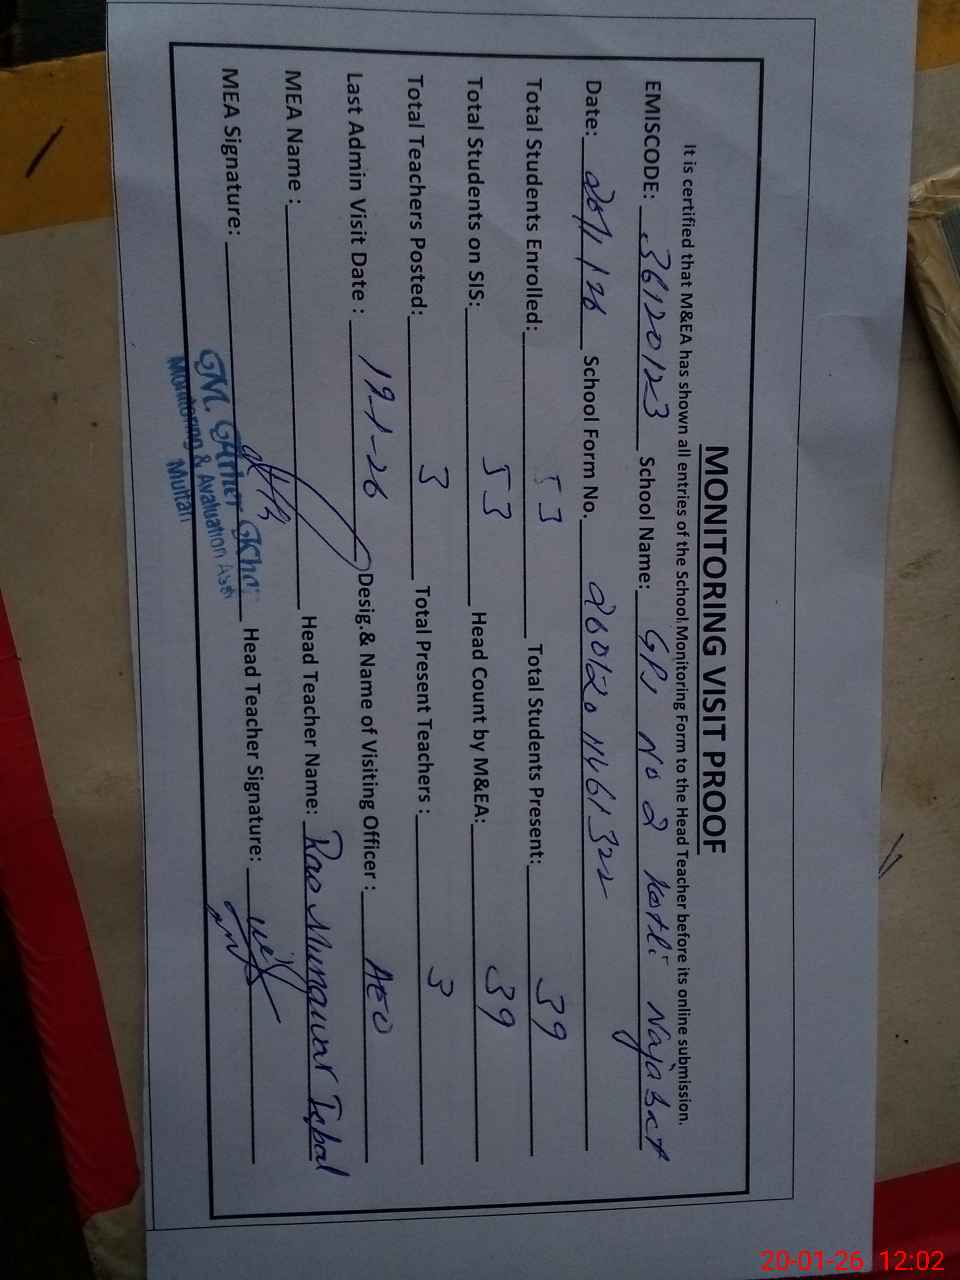 MONITORING VISIT PROOF
It is certified that M&EA has shown all entries of the School Monitoring Form to the Head Teacher before its online submission.
EMISCODE: 36120123 School Name: GPS No 2 Kotli Najabat
Date: 20/1/26 School Form No. 26012011461322
Total Students Enrolled: 53 Total Students Present: 39
Total Students on SIS: 53 Head Count by M&EA: 39
Total Teachers Posted: 3 Total Present Teachers : 3
Last Admin Visit Date : 19-1-26 Desig.& Name of Visiting Officer : AEO
MEA Name : Head Teacher Name: Rao Munawar Iqbal
MEA Signature: Head Teacher Signature:
GM. Ather
Monitoring & Avaluation Asst
Multan
20-01-26 12:02